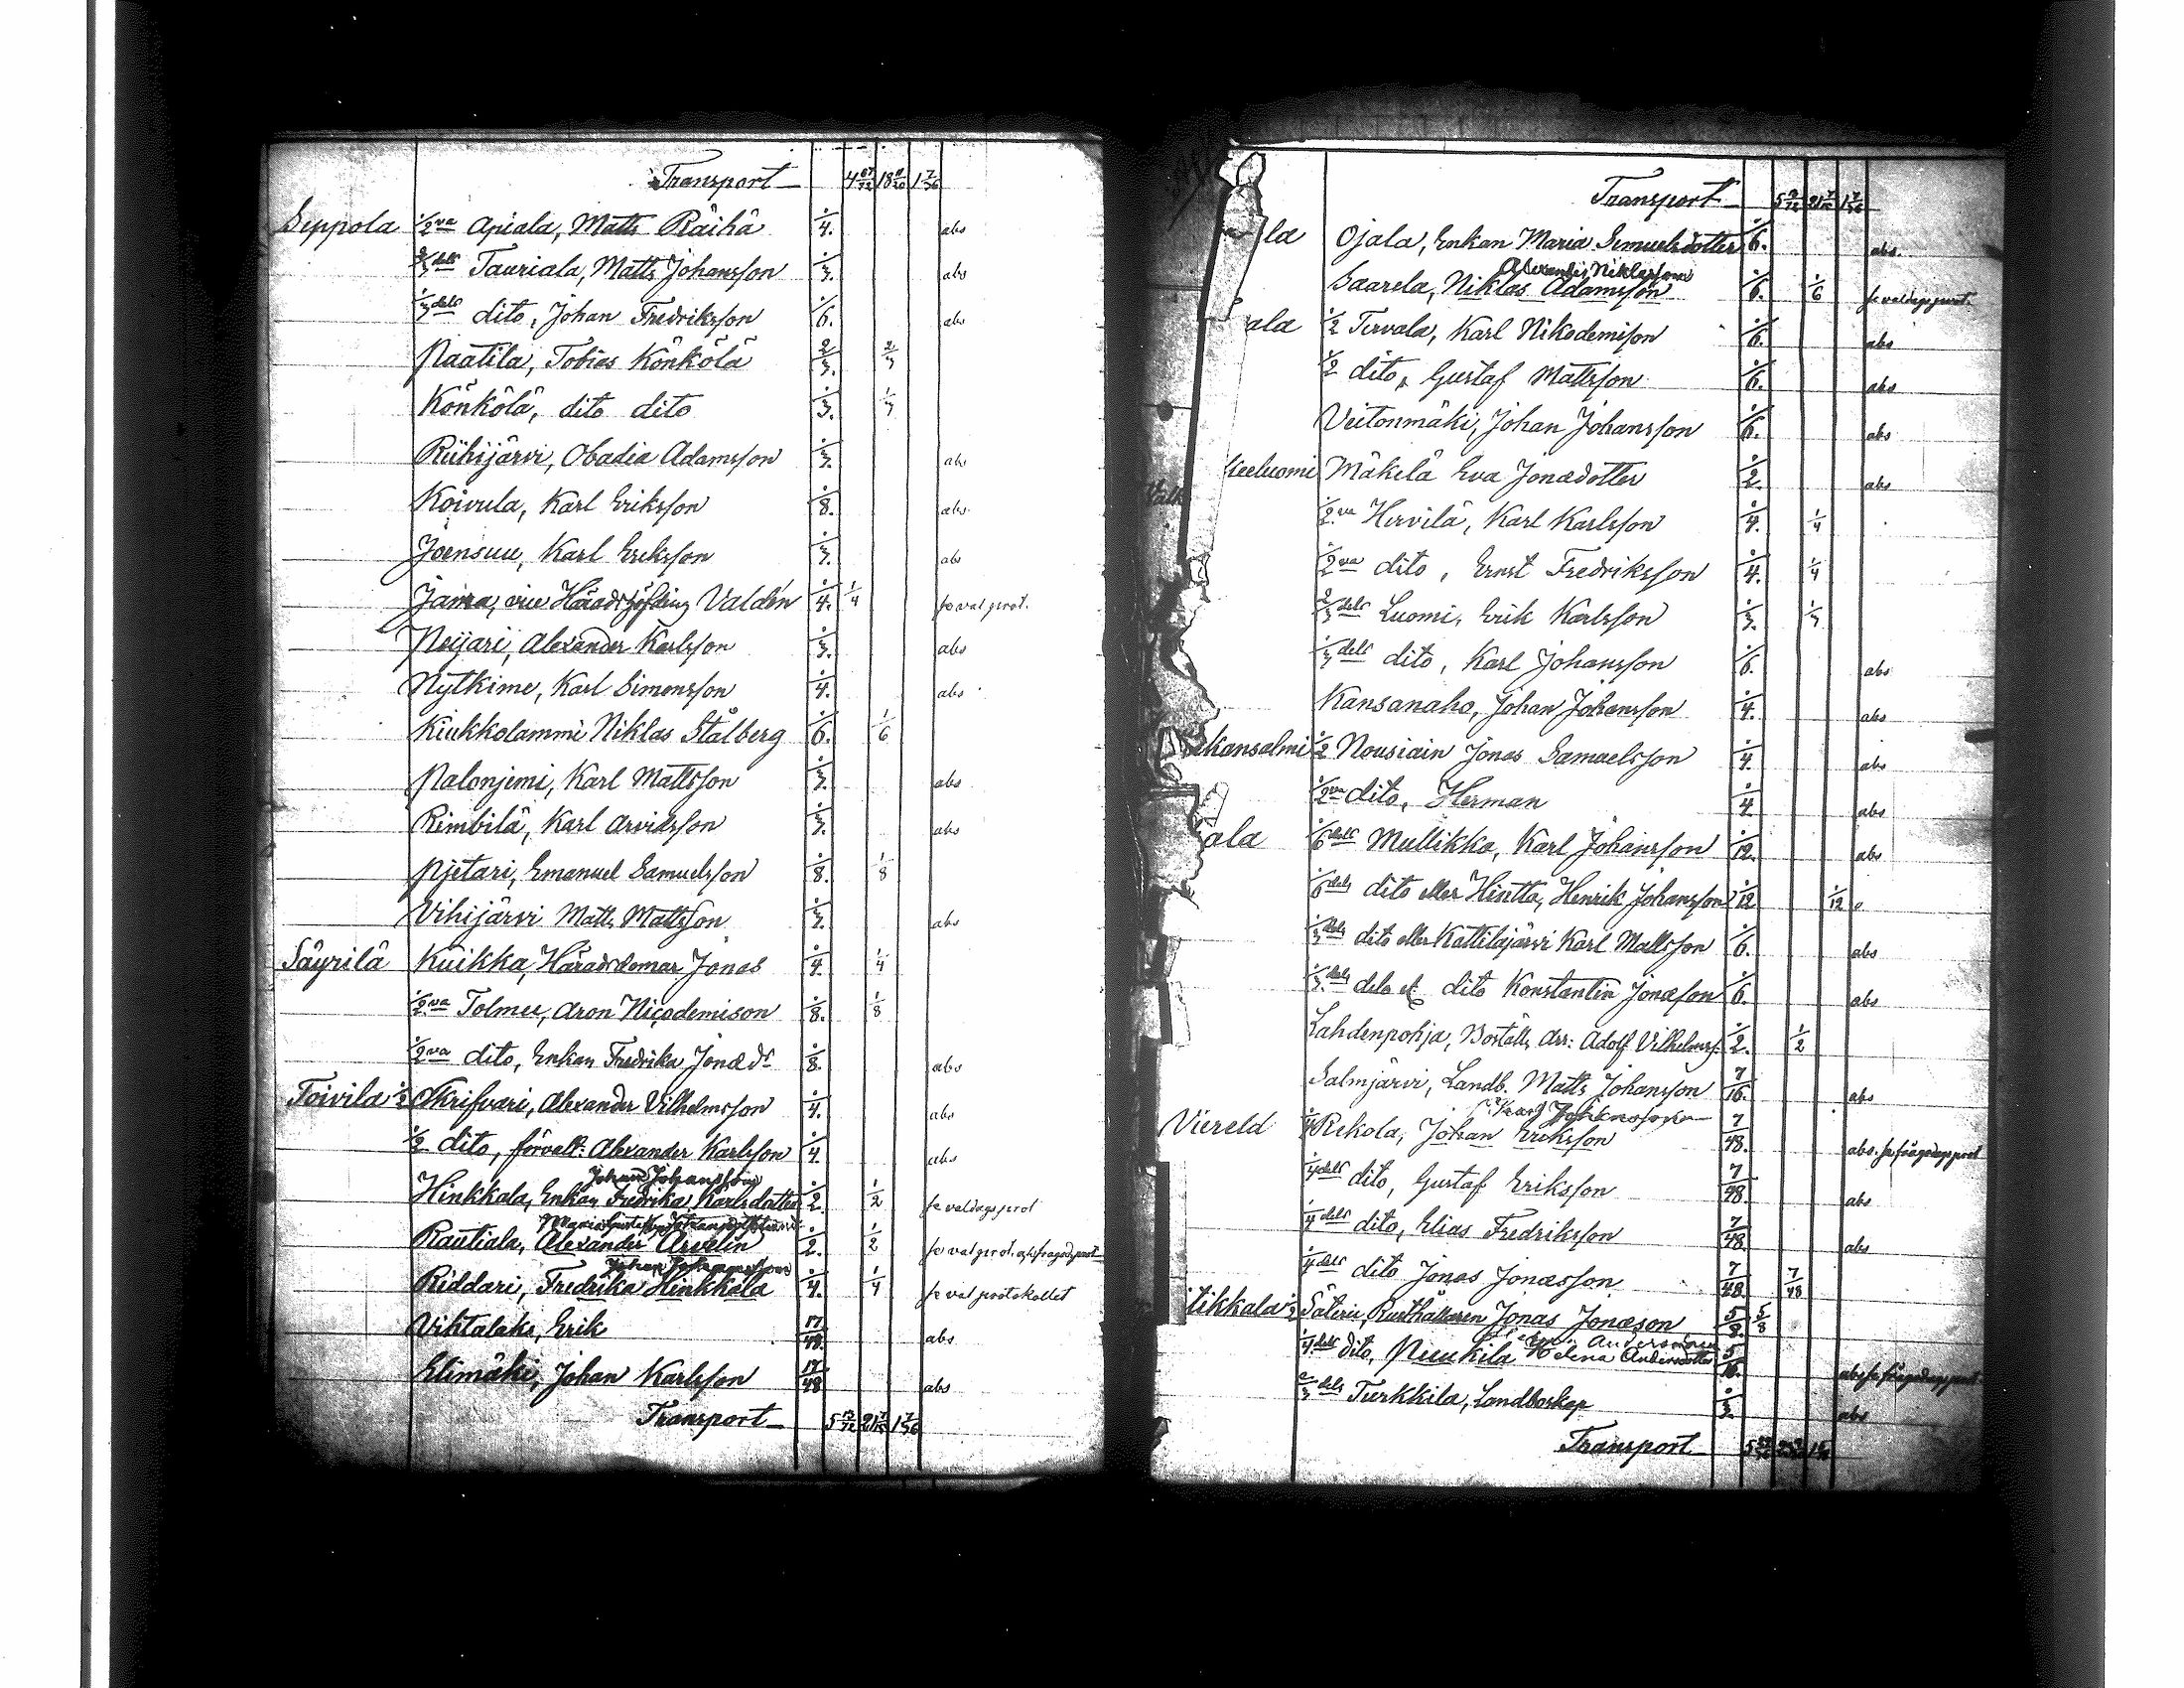 Transport 4 67/72 18 9/20 1 7/36
Seppola 1/2va Apiala, Matts Räihä 1/4. abs
2/3dels Tauriala, Matts Johansson 1/3. abs
1/3dels dito, Johan Fredriksson 1/6. abs
Paatila, Tobias Könkölä 2/3. 2/3
Könkölä, dito dito 1/3. 1/3
Riihijärvi, Obadia Adamsson 1/3. abs
Koivula, Karl Eriksson 1/8. abs
Joensuu, Karl Eriksson 1/3. abs
Jama, vice Häradshöfding Valdén 1/4. 1/4 se val prot.
Neijari, Alexander Karlsson 1/3. abs
Nytkime, Karl Simonsson 1/4. abs
Kiukkolammi Niklas Stålberg 1/6. 1/6
Palonjemi, Karl Mattsson 1/3. abs
Rimbilä, Karl Arvidsson 1/3. abs
Pjetari, Emanuel Samuelsson 1/8. 1/8
Vihijärvi Matts Mattsson 1/3. abs
Säyrilä Kuikka, Häradsdomar Jonas 1/4. 1/4
1/2va Tolmu, Aron Nicodemison 1/8. 1/8
1/2va dito, Enkan Fredrika Jonædr 1/8. abs
Toivila 1/2 Skrifvari, Alexander Vilhelmsson 1/4. abs
1/2 dito, förvalt: Alexander Karlsson 1/4. abs
Johan Johansson
Hinkkala, Enkan Fredrika Karlsdotter 1/2. 1/2 se valdagsprot
Rautiala, Alexander Arvelin 1/2. 1/2 se val prot. och frågodsprot
Johan Johansson
Riddari, Fredrika Hinkkala 1/4. 1/4 se val protokollet
Vihtalaks, Erik 17/48. abs
Elimäki, Johan Karlsson 17/48 abs
Transport 5 13/72 21 1 7/36
Transport 5 13/72 21 1 7/36
la Ojala, Enkan Maria Semuelsdotter 1/6. abs.
Alexander Niklasson
Saarela, Niklas Adamsson 1/6. 1/6 se valdagsprot.
ala 1/2 Tervala, Karl Nikodemison 1/6. abs
1/2 dito, Gustaf Mattsson 1/6. abs
Veitonmäki, Johan Johansson 1/6. abs
keeluomi Mäkelä Eva Jonædotter 1/2. abs
1/2va Hirvilä, Karl Karlsson 1/4. 1/4
1/2va dito, Ernst Fredriksson 1/4. 1/4
2/3dels Luomi, Erik Karlsson 1/3. 1/3
1/3dels dito, Karl Johansson 1/6. abs
Kansanaho, Johan Johansson 1/4. abs
kansalmi 1/2 Nousiain Jonas Samuelsson 1/4. abs
1/2va dito, Herman 1/4 abs
ala 1/6dels Mullikka, Karl Johansson 1/12. abs
1/6dels dito eller Hintta, Henrik Johansson 1/12 1/12
1/3dels dito eller Kattilajärvi Karl Mattsson 1/6. abs
1/3dels dito dito Konstantin Jonæson 1/6. abs
Lahdenpohja, Boställs Arr: Adolf Vilhelmss: 1/2. 1/2
Salmjärvi, Landb. Matts Johansson 7/16. abs
Karl Johansson
Viereld 1/4 Rekola, Johan Eriksson 7/48. abs. se frågodagsprot
1/4dels dito, Gustaf Eriksson 7/48 abs
1/4dels dito, Elias Fredriksson 7/48. abs
1/4dels dito Jonas Jonæsson 7/48. 7/48
tikkala 1/2 Säteri, Rusthållaren Jonas Jonæson 5/8. 5/8
1/4dels dito, Puukila Helena Andersdotter 5/16. abs se frågodagsprot
2/3dels Turkkila, Landboskap 1/3. abs
Transport